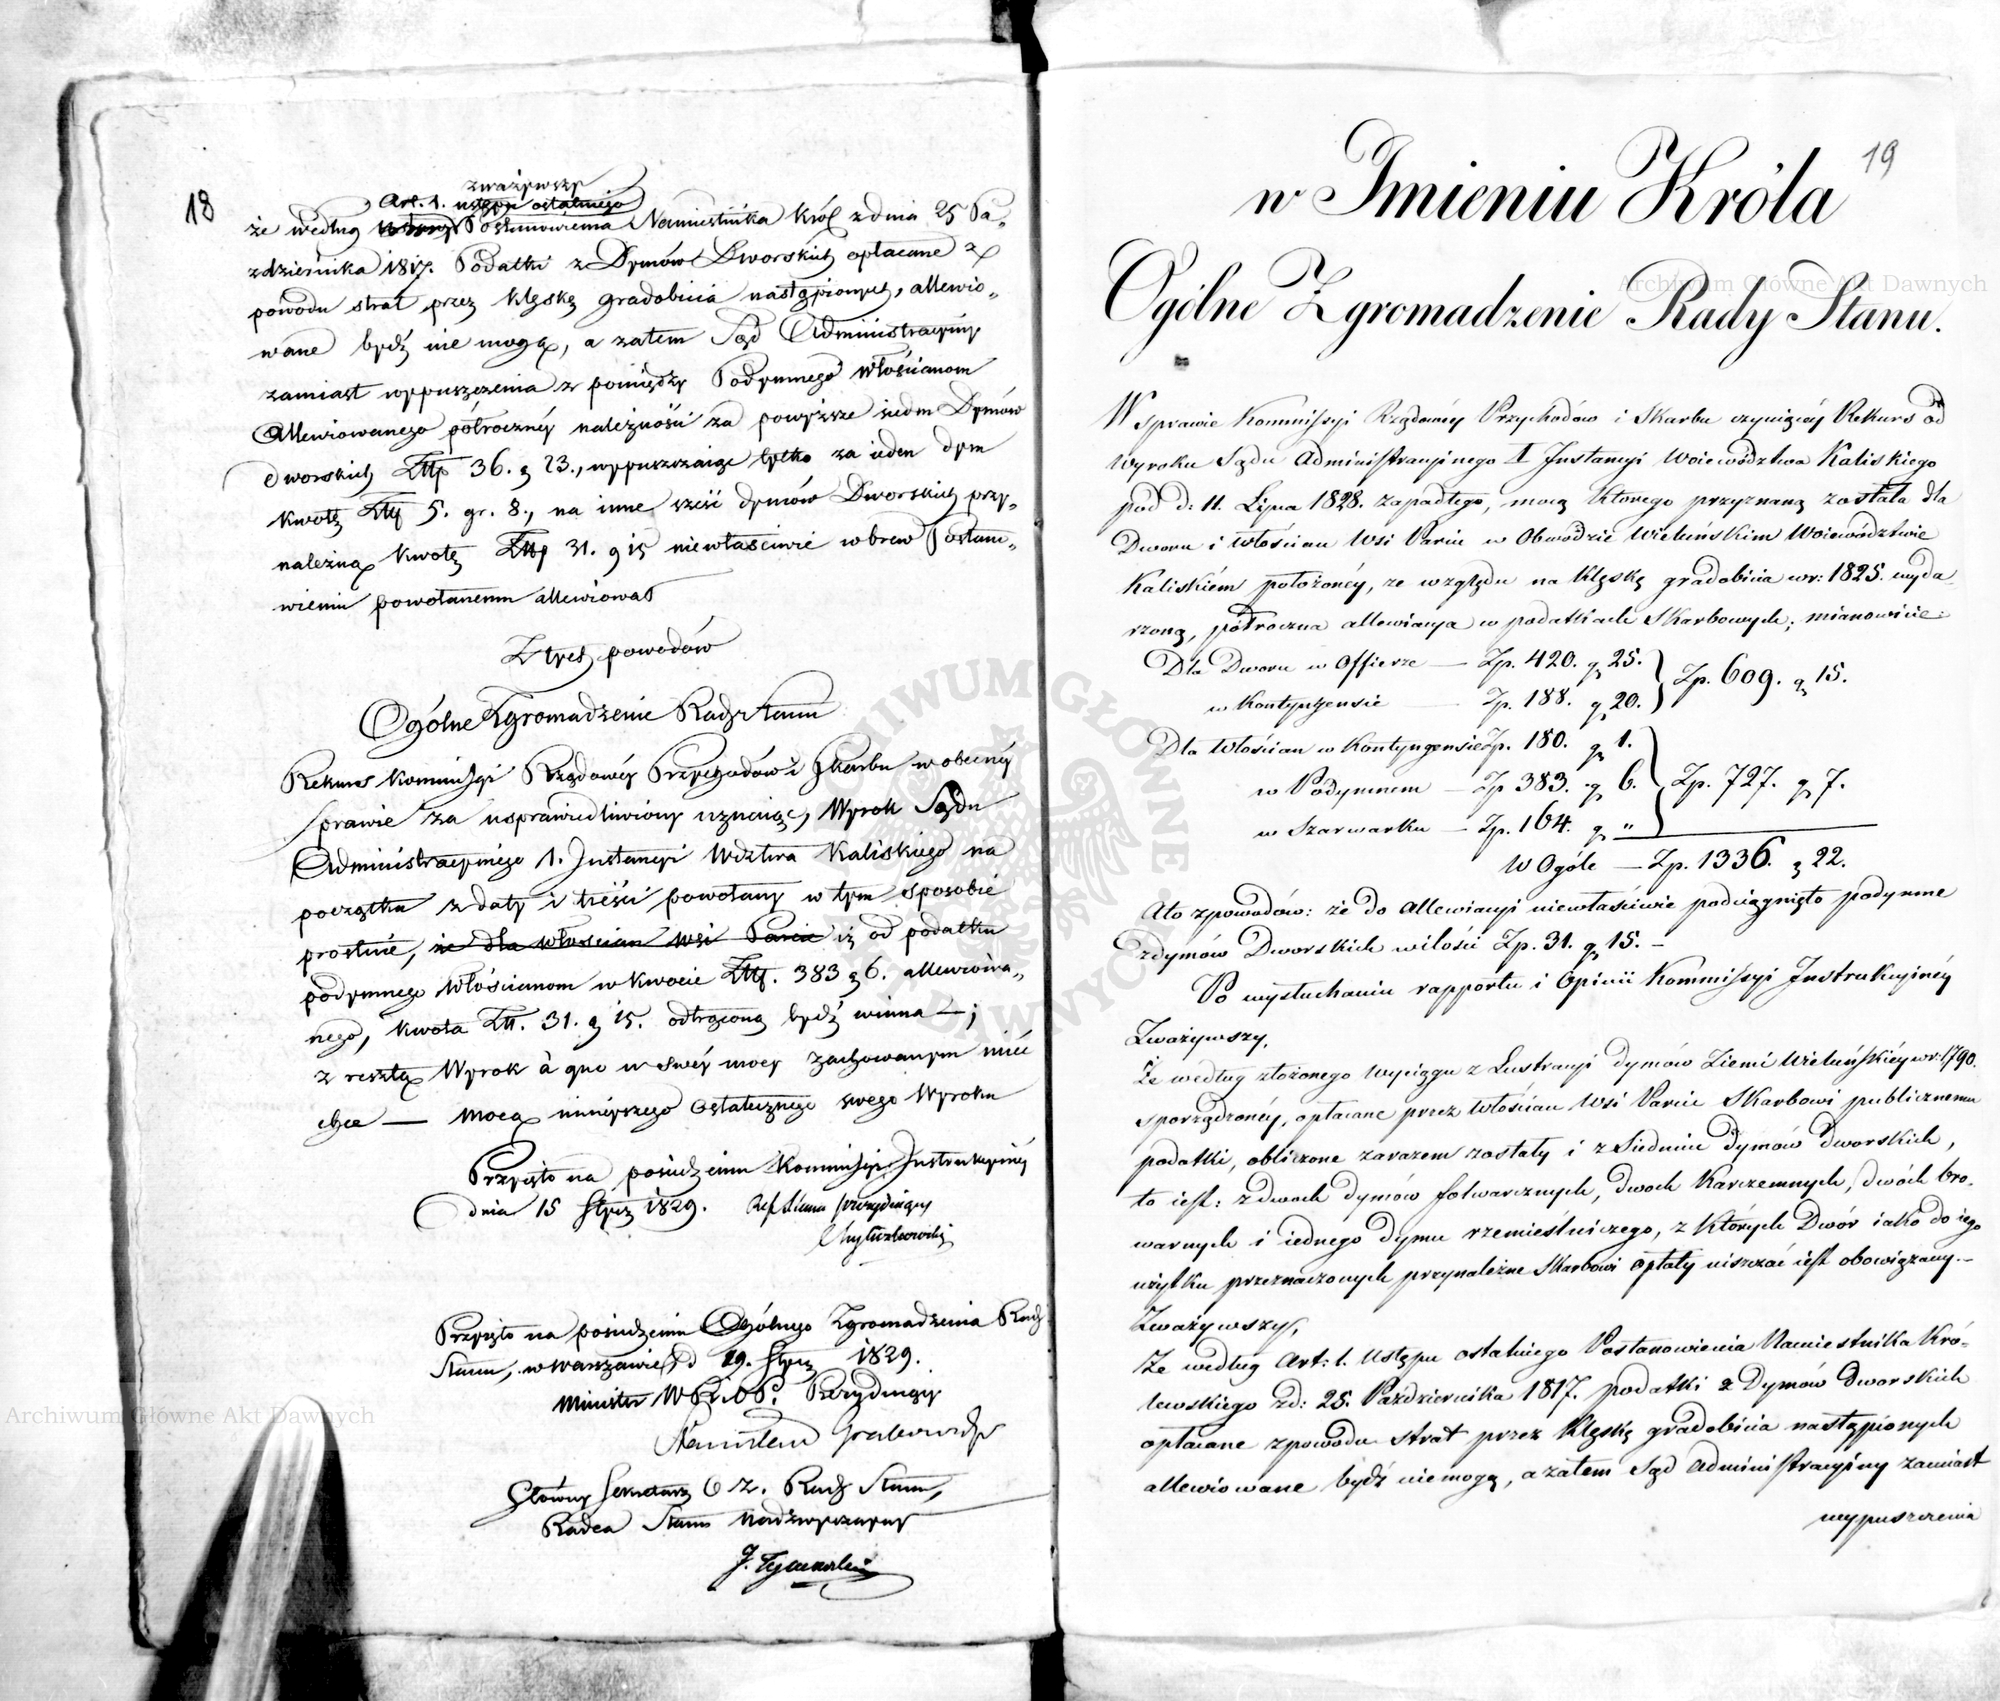 18
zważywszy
Art. 1. ustępu ostatniego
że według Postanowienia Namiestnika Król z dnia 25 Pa-
ździernika 1817. Podatki z Dymów Dworskich opłacane z
powodu strat przez klęskę gradobicia nastąpionych, allewio-
wane bydź nie mogą, a zatem Sąd Administracyiny
zamiast wypuszczenia z pomiędzy Podymnego Włościanom
allewiowanego półroczney należności za powyższe siedm Dymów
dworskich Złtp 36. g 23., wypuszczaiąc tylko za ieden dym
kwotę Złtp 5. gr. 8., na inne sześć dymów Dworskich przy-
należną kwotę Złtp 31. g 15 niewłaściwie wbrew Postano-
wieniu powołanemu allewiował
Z tych powodów
Ogólne Zgromadzenie Rady Stanu
Rekurs Kommissyi Rządowéy Przychodów i Skarbu w obecnéy
sprawie za usprawiedliwiony uznaiąc, Wyrok Sądu
Administracyinego 1. Instancyi Wdztwa Kaliskiego na
początku z daty i treści powołany w tym sposobie
prostuie, że dla włościan wsi Parcie iż od podatku
podymnego Włościanom w kwocie Złtp. 383 g 6. allewiowa-
nego, kwota Złt. 31. g 15. odtrąconą bydź winna —;
z resztą Wyrok à quo w swéy mocy zachowanym mieć
chce — mocą ninieyszego Ostatecznego swego Wyroku
Przyięto na posiedzeniu Kommissyi Instrukcyinéy
dnia 15 Stycz 1829. Ref. Stanu prezyduiący
Przyięto na posiedzeniu Ogólnego Zgromadzenia Rady
Stanu, w Warszawie d 29. Stycz 1829.
Minister W R i O P. Prezyduiący
Stanisław Grabowski
Główny Sekretarz O Z. Rady Stanu,
Radca Stanu Nadzwyczayny
J. Tymowski
19
w Imieniu Króla
Ogólne Zgromadzenie Rady Stanu.
W sprawie Kommissyi Rządowéy Przychodów i Skarbu czyniącéy Rekurs od
Wyroku Sądu Administracyinego I Instancyi Woiewództwa Kaliskiego
pod d: 11. Lipca 1828. zapadłego, mocą którego przyznaną została dla
Dworu i Włościan Wsi Parcie w Obwodzie Wieluńskim Woiewództwie
Kaliskiém położonéy, ze względu na klęskę gradobicia w r: 1825. wyda-
rzoną, półroczna allewiacya w podatkach Skarbowych; mianowicie:
Dla Dworu w Offierze — Zp. 420. g 25. } Zp. 609. g 15.
w Kontyngensie — Zp. 188. g 20.
Dla Włościan w Kontyngensie Zp. 180. g 1. } Zp. 727. g 7.
w Podymnem — Zp 383. g 6.
w Szarwarku — Zp. 164. g "
W Ogóle — Zp. 1336. g 22.
Ato z powodów: że do Allewiacyi niewłaściwie podciągnięto podymne
z dymów Dworskich w ilości Zp. 31. g 15. -
Po wysłuchaniu rapportu i Opinii Kommissyi Instrukcyinéy
Zważywszy,
Że według złożonego wyciągu z Lustracyi dymów Ziemi Wieluńskiéy w r: 1790.
sporządzonéy, opłacane przez Włościan Wsi Parcie Skarbowi publicznemu
podatki, obliczone zarazem zostały i z Siedmiu Dymów dworskich,
to iest: z dwóch dymów folwarcznych, dwóch Karczemnych, dwóch bro-
warnych i iednego dymu rzemieślniczego, z których Dwór iako do iego
użytku przeznaczonych przynależne Skarbowi opłaty uiszczać iest obowiązany.-
Zważywszy,
Że według Art: 1. Ustępu ostatniego Postanowienia Namiestnika Kró-
lewskiego z d: 25. Października 1817. podatki z Dymów dworskich
opłacane z powodu strat przez klęskę gradobicia nastąpionych
allewiowane bydź nie mogą, a zatem Sąd Administracyiny zamiast
wypuszczenia
Archiwum Główne Akt Dawnych
Archiwum Główne Akt Dawnych
ARCHIWUM GŁÓWNE AKT DAWNYCH